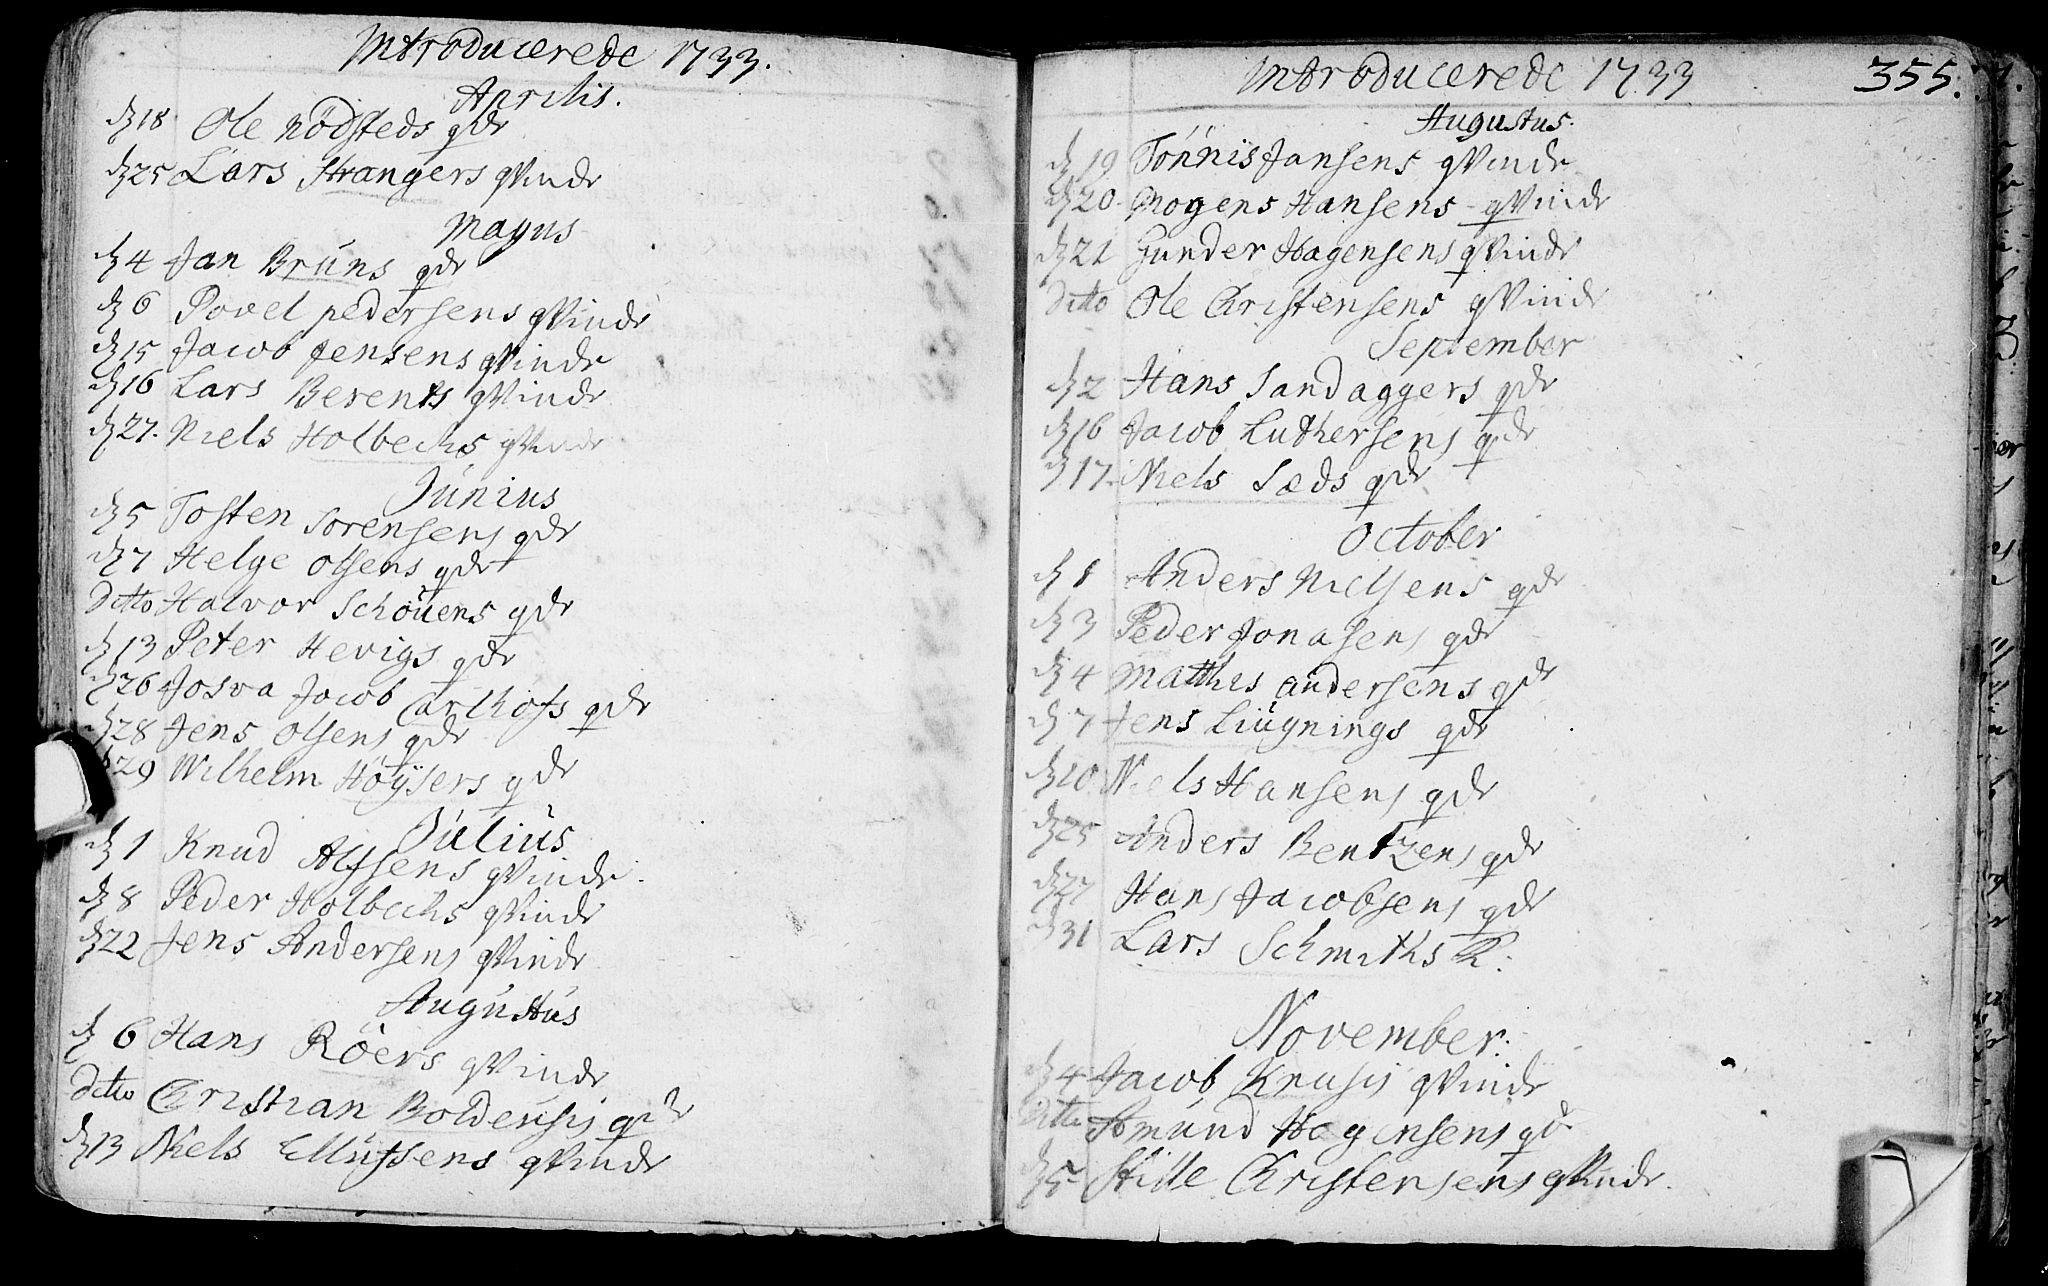 Introducerede 1733.
Aprilis.
d 18 Ole Nödsteds qde
d 25 Lars Strangers qvinde
Mayus
d 4 Jan Bruns qde
d 6 Povel pedersens qvinde
d 15 Jacob Jensens qvinde
d 16 Lars Berents qvinde
d 27. Niels Holbechs qvinde
Junius
d 5 Tosten Sorensens qde
d 7 Helge Olsens qde
Ditto Halvor Schouens qde
d 13 Peter Hevigs qde
d 26 Josva Jacob Carlhofs qde
d 28 Jens Olsens qde
d 29 Wilhelm Höysers qde
Julius
d 1 Knud Alfsens qvinde
d 8 Peder Holbechs qvinde
d 22 Jens Andersens qvinde
Augustus
d 6 Hans Röers qvinde
Ditto Christian Boldensis qde
d 13 Niels Ellufsens qvinde
Introducerede 1733
355.
Augustus.
d 19 Tönnis Jansens qvinde
d 20 Mogens Hansens qvinde
d 21 Gunder Hagensens qvinde
Ditto Ole Christensens qvinde
September
d 2 Hans Sandaggers qde
d 16 Jacob Luthersens qde
d 17. Niels Sæds qde
October
d 1 Anders Nielsens qde
d 3 Peder Jonasens qde
d 4 Matthis Andersens qde
d 7 Jens Liugnings qde
d 10 Niels Hansens qde
d 25 Anders Bentzens qde
d 27 Hans Jacobsens qde
d 31 Lars Schmiths K:
November:
d 4 Jacob Knusis qvinde
Ditto Amund Hagensens qde
d 5 Stille Christensens qvinde.